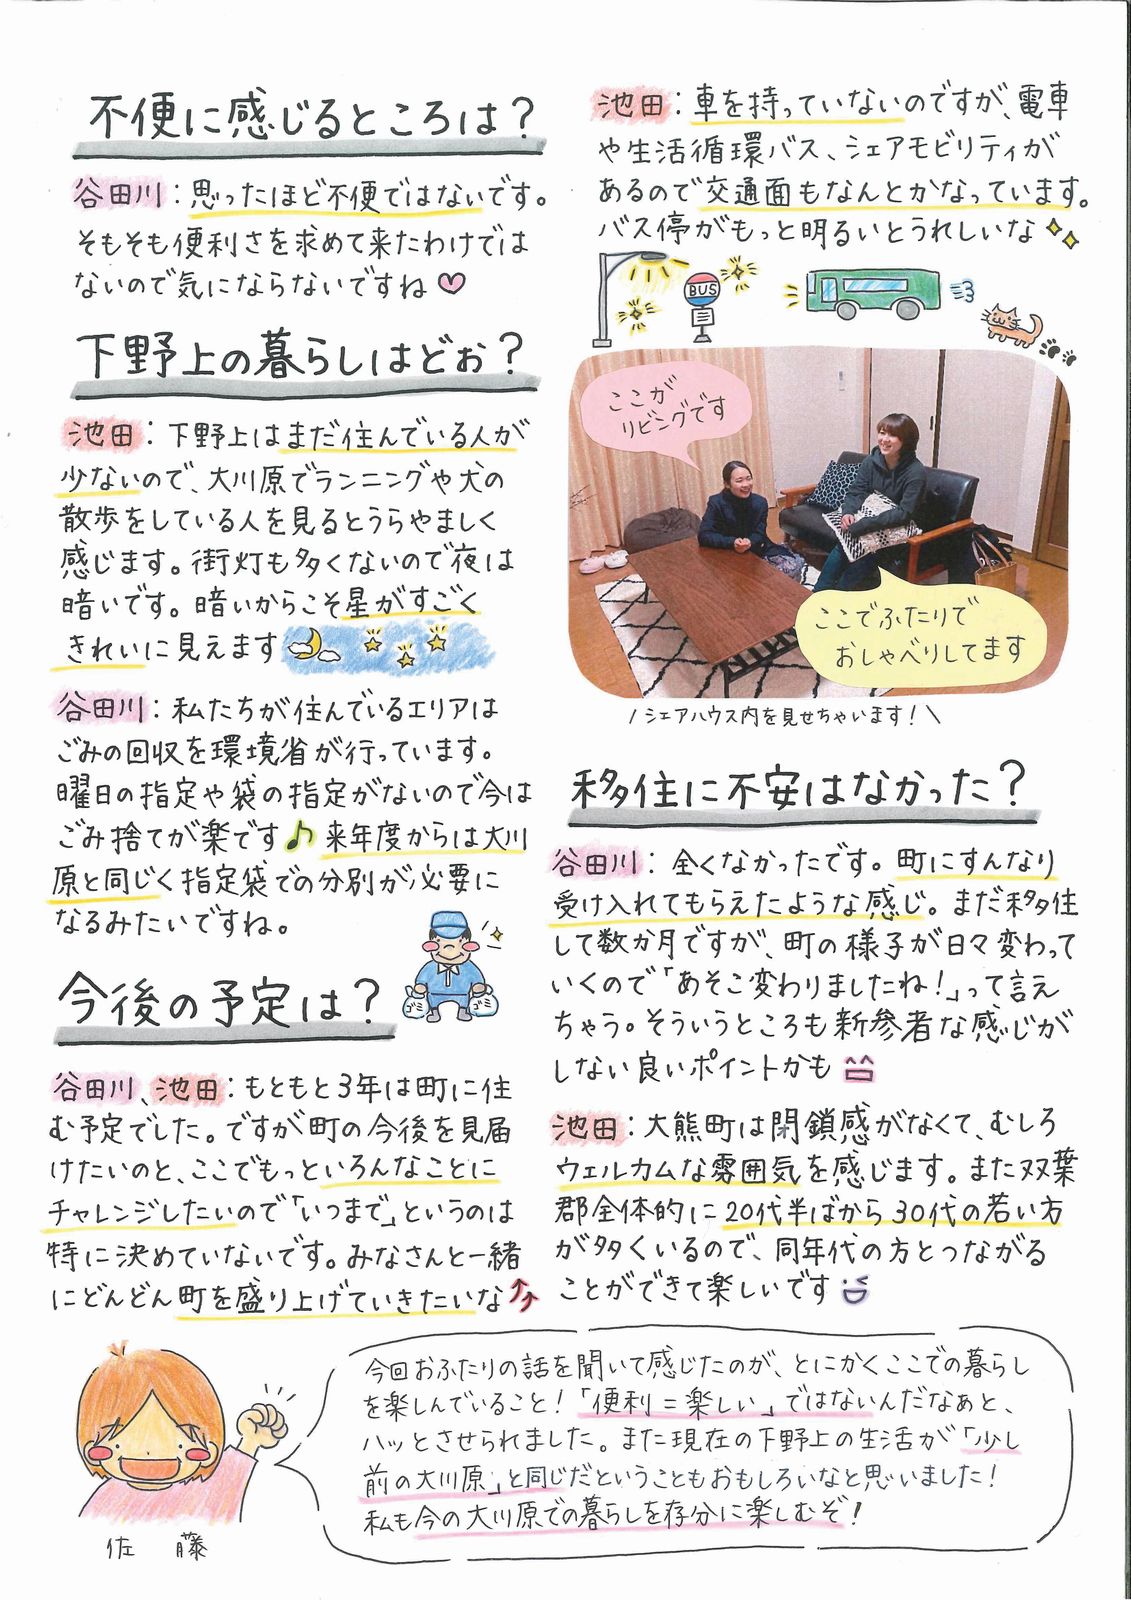 不便に感じるところは？
谷田川：思ったほど不便ではないです。
そもそも便利さを求めて来たわけでは
ないので気にならないですね
池田：車を持っていないのですが、電車
や生活循環バス、シェアモビリティが
あるので交通面もなんとかなっています。
バス停がもっと明るいとうれしいな
BUS
下野上の暮らしはどぉ？
池田：下野上はまだ住んでいる人が
少ないので、大川原でランニングや犬の
散歩をしている人を見るとうらやましく
感じます。街灯も多くないので夜は
暗いです。暗いからこそ星がすごく
きれいに見えます
谷田川：私たちが住んでいるエリアは
ごみの回収を環境省が行っています。
曜日の指定や袋の指定がないので今は
ごみ捨てが楽です♪来年度からは大川
原と同じく指定袋での分別が必要に
なるみたいですね。
ゴミ
ゴミ
ここが
リビングです
ここでふたりで
おしゃべりしてます
/シェアハウス内を見せちゃいます！\
今後の予定は？
谷田川、池田：もともと3年は町に住
む予定でした。ですが町の今後を見届
けたいのと、ここでもっといろんなことに
チャレンジしたいので「いつまで」というのは
特に決めていないです。みなさんと一緒
にどんどん町を盛り上げていきたいな
移住に不安はなかった？
谷田川：全くなかったです。町にすんなり
受け入れてもらえたような感じ。まだ移住
して数か月ですが、町の様子が日々変わって
いくので「あそこ変わりましたね！」って言え
ちゃう。そういうところも新参者な感じが
しない良いポイントかも
池田：大熊町は閉鎖感がなくて、むしろ
ウェルカムな雰囲気を感じます。また双葉
郡全体的に20代半ばから30代の若い方
が多くいるので、同年代の方とつながる
ことができて楽しいです
今回おふたりの話を聞いて感じたのが、とにかくここでの暮らし
を楽しんでいること！「便利＝楽しい」ではないんだなぁと、
ハッとさせられました。また現在の下野上の生活が「少し
前の大川原」と同じだということもおもしろいなと思いました！
私も今の大川原での暮らしを存分に楽しむぞ！
佐　藤